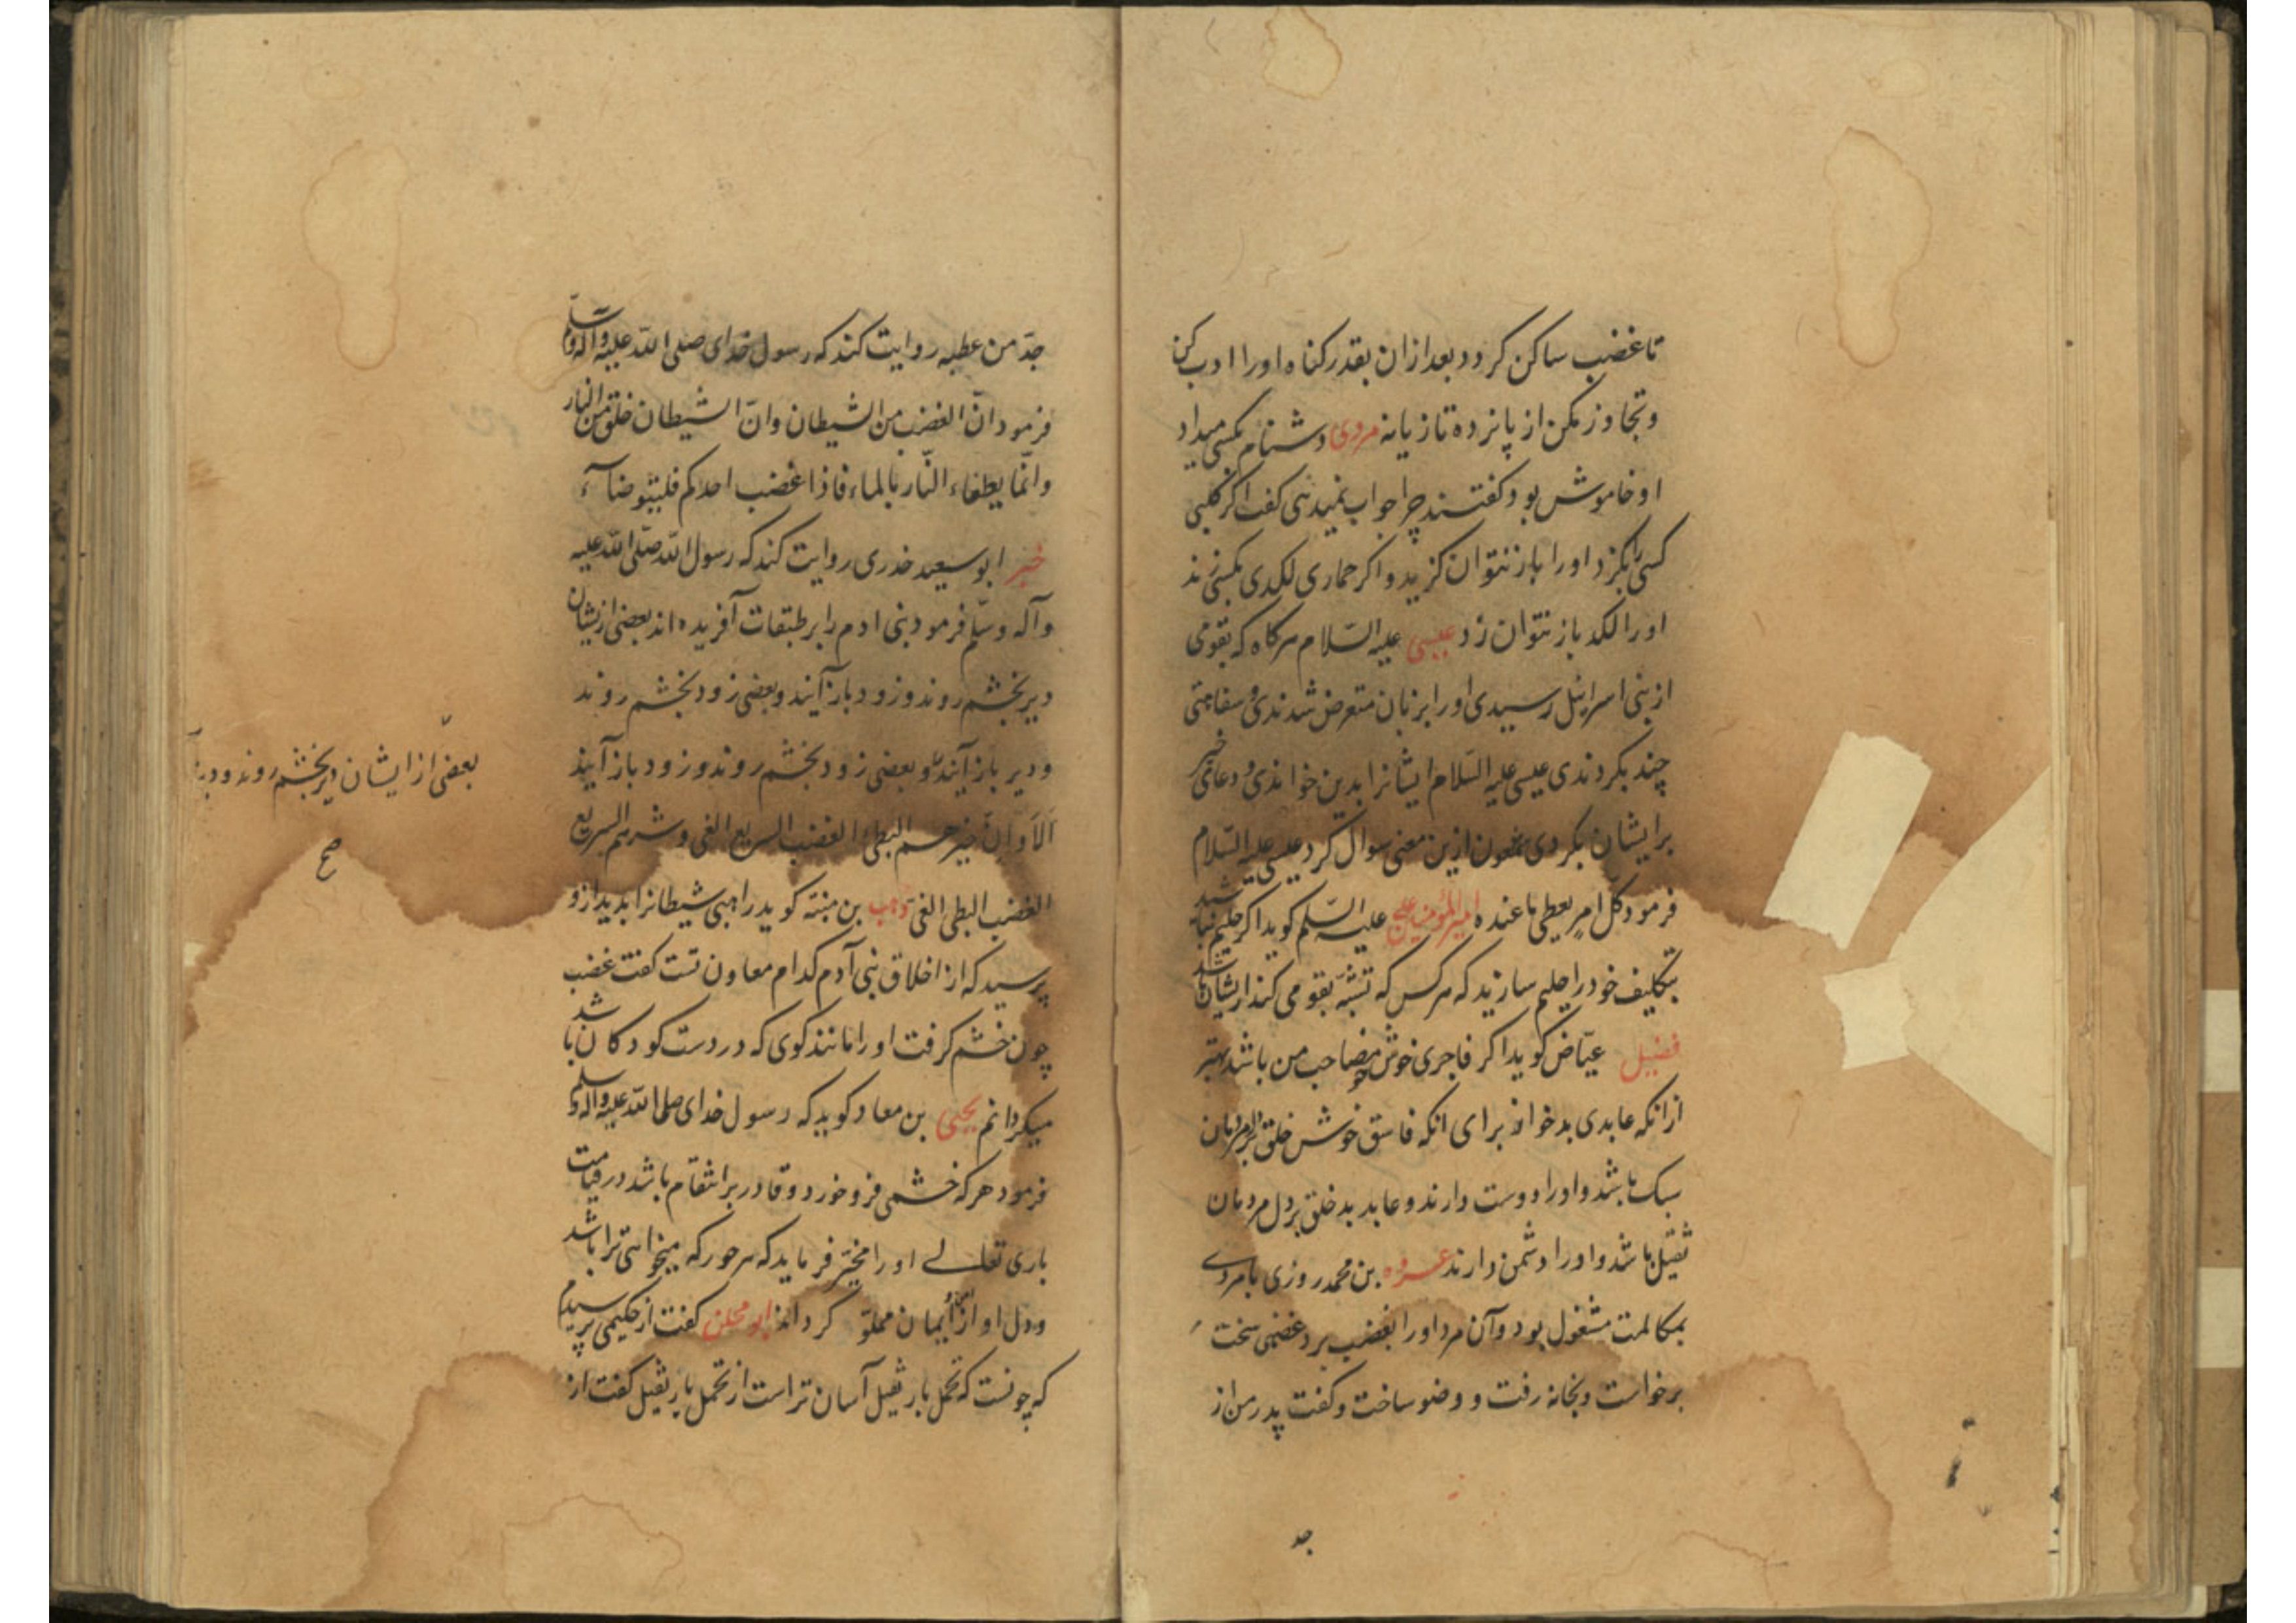 تا غضب ساکن کردد بعد ازان بقدر کناه او را ادب کن
و تجاوز مکن از پانزده تازیانه مردی دشنام بکسی میداد
او خاموش بود کفتند چرا جواب نمیدهی کفت اکر کلبی
کسی را بکزد او را باز نتوان کزید و اکر حماری لکدی بکسی زند
او را لکد باز نتوان زد عیسی علیه السّلام هرکاه که بقومی
از بنی اسرائیل رسیدی او را بزبان متعرض شدندی و سفاهتی
چند بکردندی عیسی علیه السّلام ایشانرا بدین خواندی و دعای خیر
بر ایشان بکردی شمعون ازین معنی سوال کرد عیسی علیه السّلام
فرمود کلّ امرٍ یعطی ما عنده امیرالمؤمنین علی علیه السّلم کوید اکر حلیم نباشید
بتکلیف خود را حلیم سازید که هرکس که تشبّه بقومی کند از یشان باشد
فضیل عیّاض کوید اکر فاجری خوش خو مصاحب من باشد بهتر
ازانکه عابدی بدخو از برای انکه فاسق خوش خلق بر دل مردمان
سبک باشد و او را دوست دارند و عابد بدخلق بر دل مردمان
ثقیل باشد و او را دشمن دارند عروه بن محمد روزی با مردی
بمکالمت مشغول بود و آن مرد او را بغضب برد غضبی سخت
برخواست و بخانه رفت و وضو ساخت و کفت پدر من از
جد
جدّ من عطیه روایت کند که رسول خدای صلی اللّه علیه و آله و سلّم
فرمود انّ الغضب من الشیطان و انّ الشیطان خلق من النار
و انّما یطفاء النّار بالماء فاذا غضب احدکم فلیتوضاء
خبر ابو سعید خدری روایت کند که رسول اللّه صلّی اللّه علیه
و آله و سلّم فرمود بنی ادم را بر طبقات آفریده اند بعضی ازیشان
دیر بخشم روند و زود باز آیند و بعضی زود بخشم روند
و دیر باز آیند و بعضی زود بخشم روند و زود باز آیند
بعضی از ایشان دیر بخشم روند و دیر
صح
اَلا و انّ خیرهم البطئ الغضب السریع الفی و شرهم السریع
الغضب البطی الفی وهب بن منبّه کوید راهبی شیطانرا بدید ازو
پرسید که از اخلاق بنی آدم کدام معاون تست کفت غضب
چون خشم کرفت او را مانند کوی که در دست کودکان باشد
میکردانم یحیی بن معاد کوید که رسول خدای صلی اللّه علیه و آله و سلم
فرمود هر که خشمی فرو خورد و قادر بر انتقام باشد در قیامت
باری تعالی او را مخیّر فرماید که هر حور که میخواهی ترا باشد
و دل او از امن و ایمان مملوّ کرداند ابو محلن کفت از حکیمی پرسیدم
که چونست که تحمل بار ثقیل آسان تر است از تحمل یار ثقیل کفت از